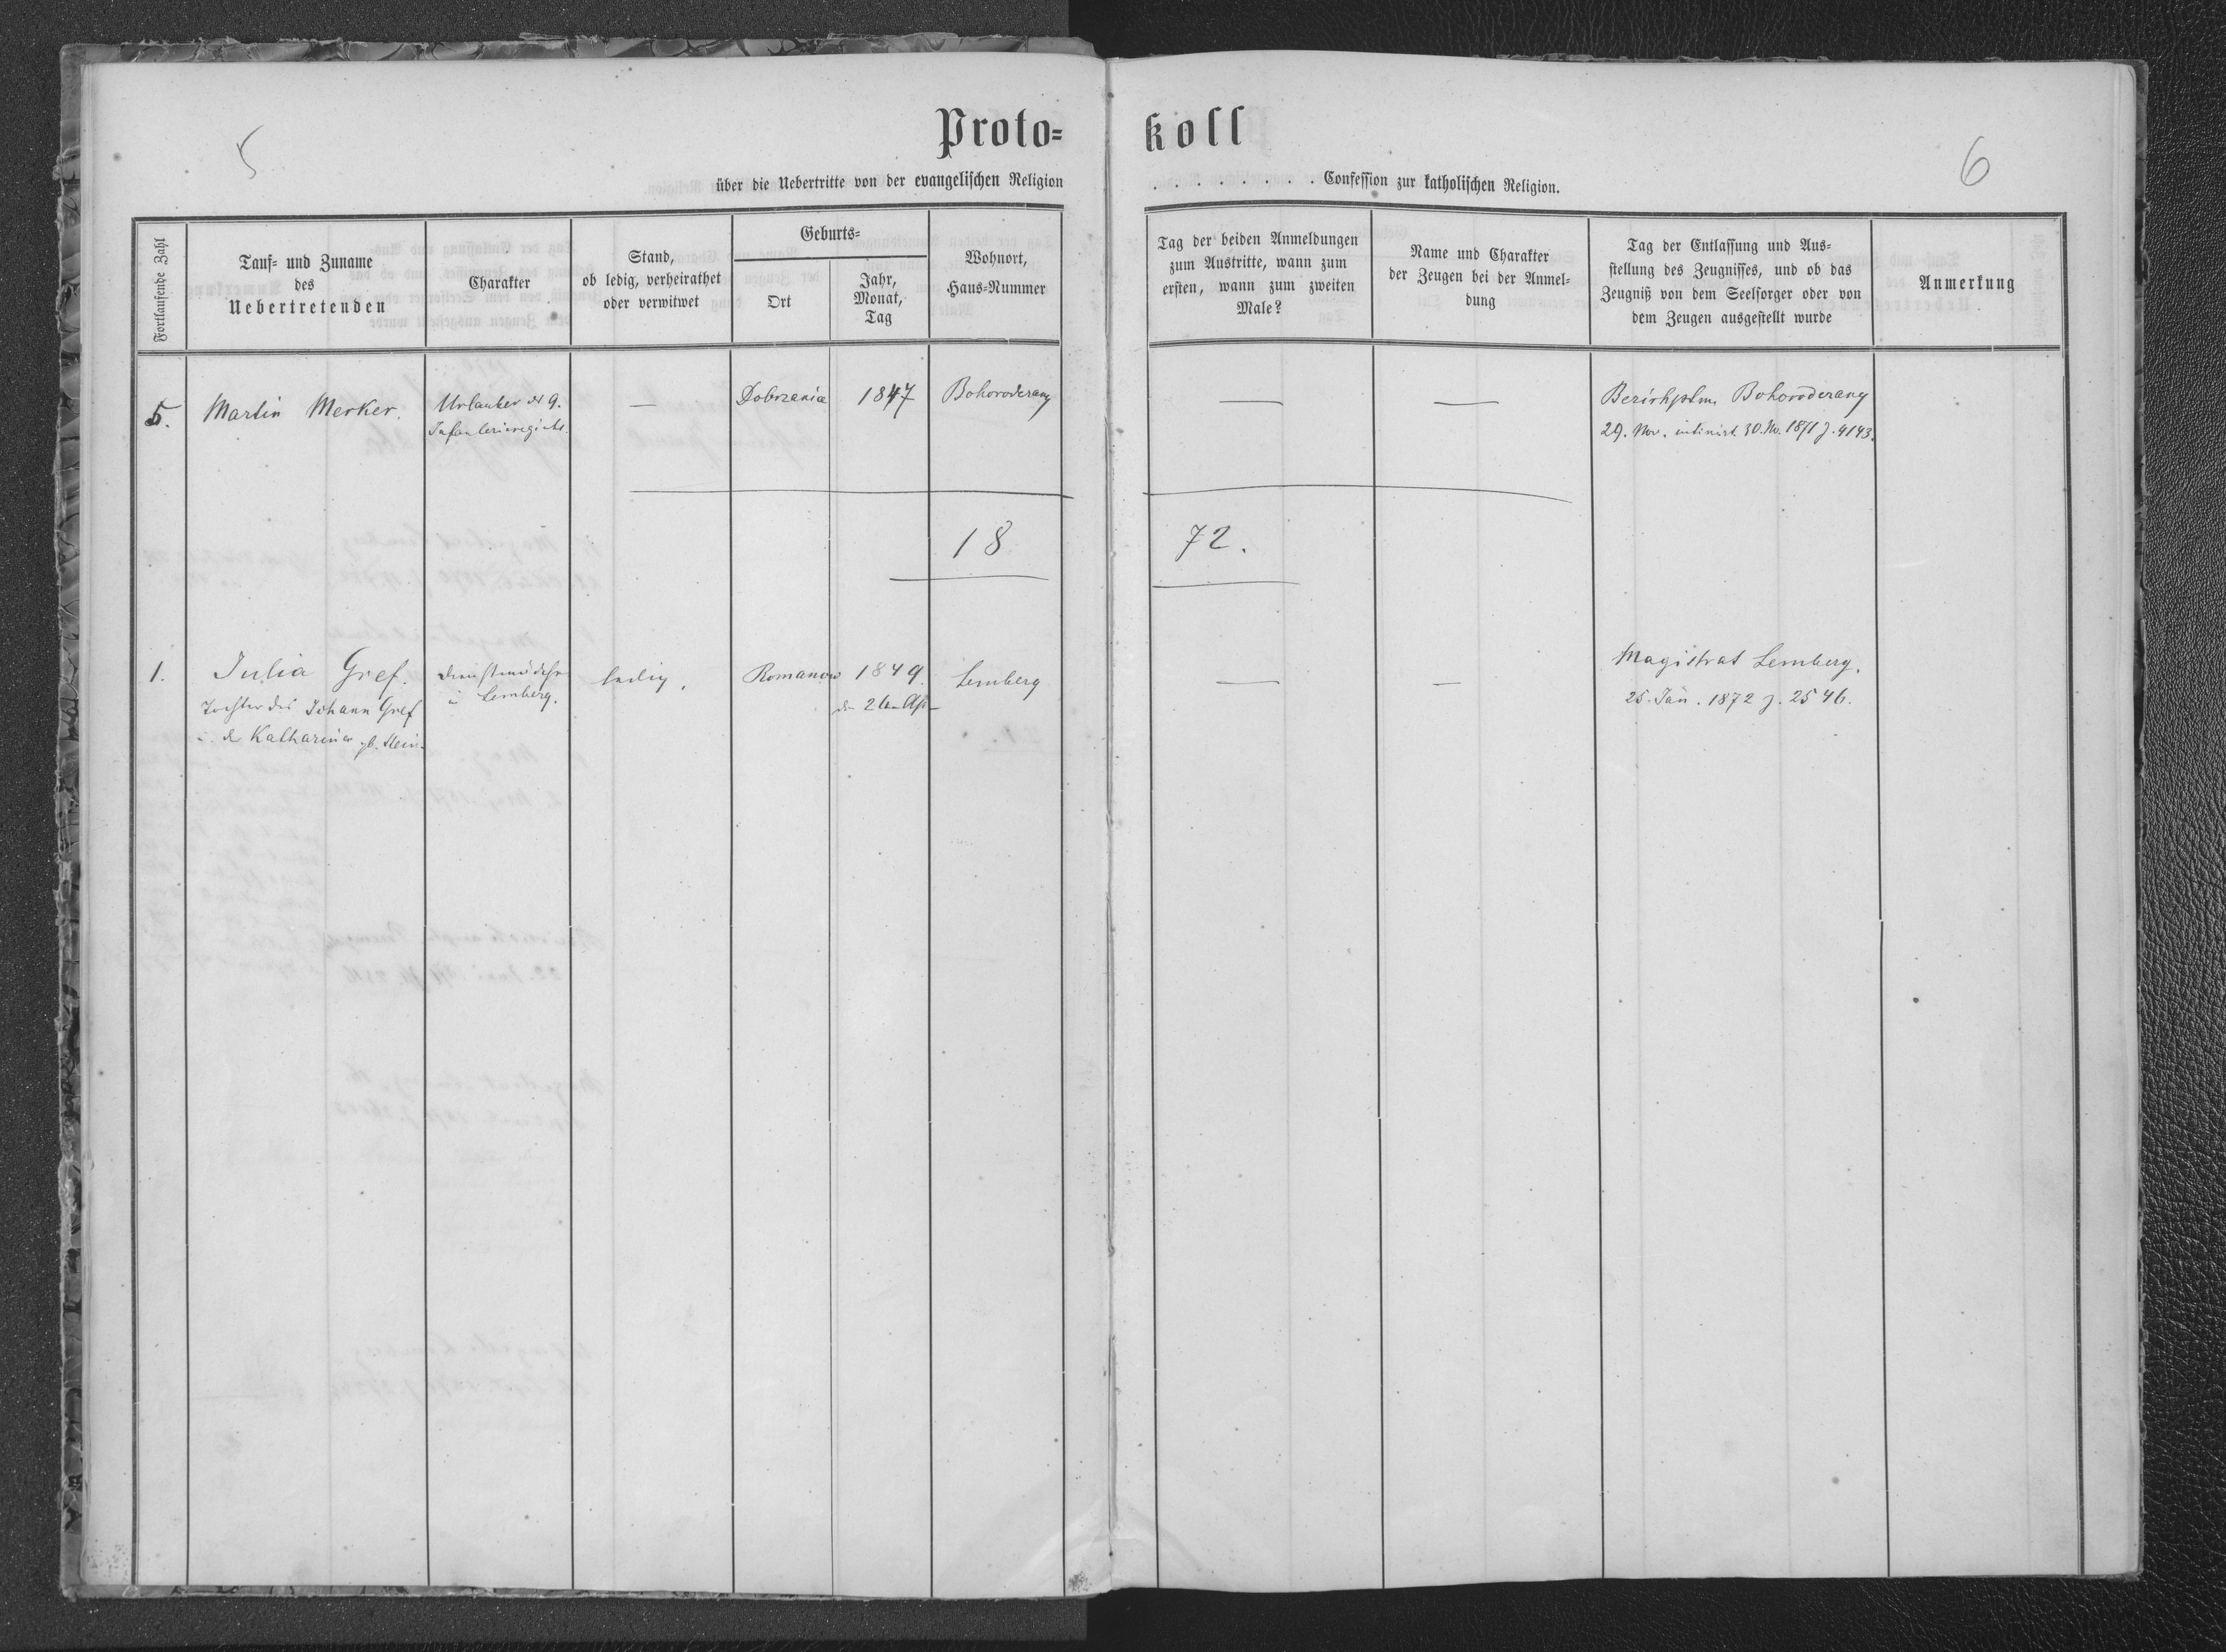 5
6
Proto= koll
über die Uebertritte von der evangelischen Religion . . . . . . . . Confession zur katholischen Religion.
Fortlaufende Zahl
Tauf= und Zuname
des
Uebertretenden
Charakter
Stand,
ob ledig, verheirathet
oder verwitwet
Geburts=
Ort
Jahr,
Monat,
Tag
Wohnort,
Haus=Nummer
Tag der beiden Anmeldungen
zum Austritte, wann zum
ersten, wann zum zweiten
Male?
Name und Charakter
der Zeugen bei der Anmel=
dung
Tag der Entlassung und Aus=
stellung des Zeugnisses, und ob das
Zeugniß von dem Seelsorger oder von
dem Zeugen ausgestellt wurde
Anmerkung
5.
Martin Merker.
Urlauber d 9.
Infanterieregimts.
—
Dobrzanica
1847
Bohorodczany
—
—
Bezirkhptm. Bohorodczany
29. Nov. intimirt 30. No. 1871 z. 4143.
18 72.
1.
Julia Gref.
Tochter des Johann Gref
u. d Katharina gb. Stein.
Dienstmädchen
in Lemberg.
ledig.
Romanow
1849.
den 26
Lemberg
—
—
Magistrat Lemberg.
25. Jän. 1872 z. 2546.